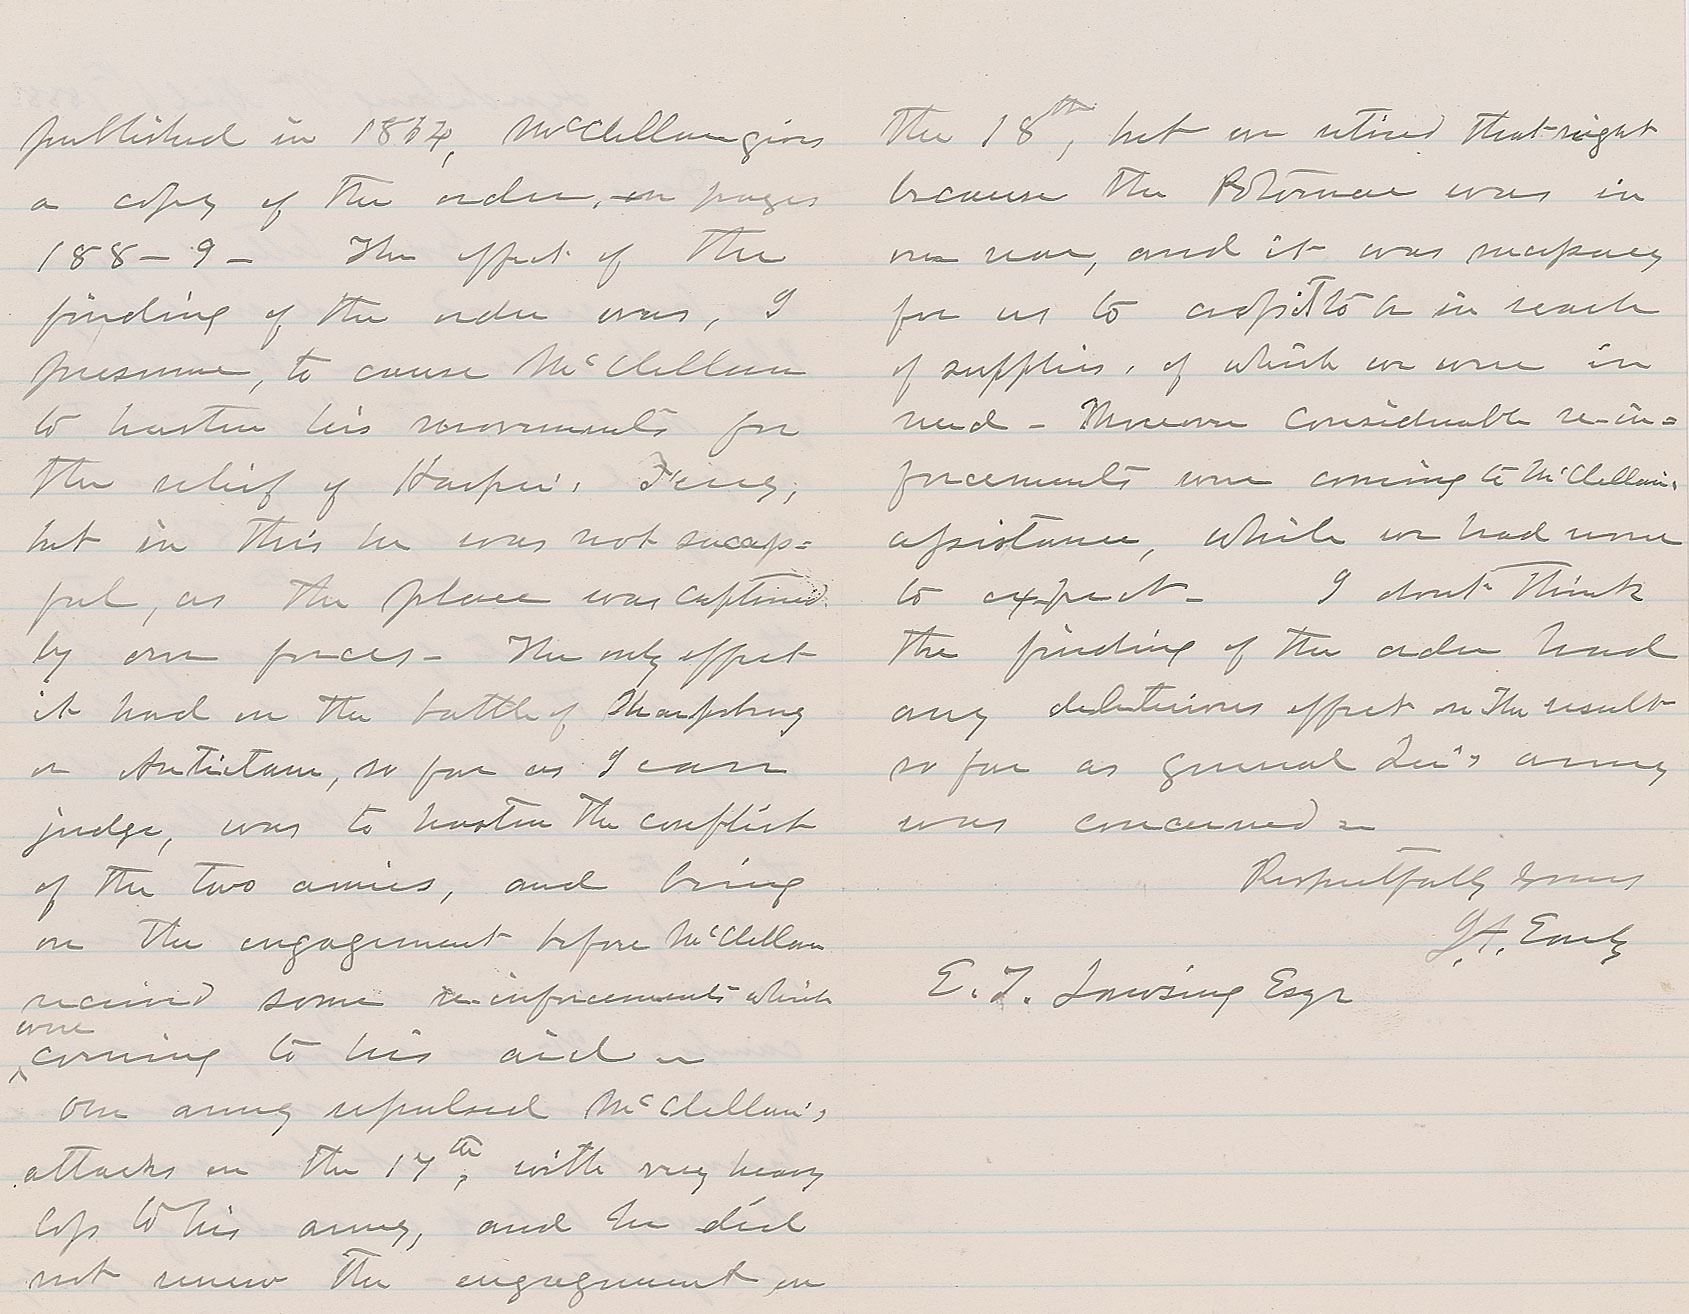 published in 1864, McClellan gives
a copy of the order, on pages
188-9- The effect of the
finding of the order was, I
presume, to cause McClellan
to hasten his movements for
the relief of Harper's Ferry,
but in this he was not success=
ful, as the place was captured
by our forces- The only effect
it had on the battle of Sharpsburg
or Antietam, so far as I can
judge, was to hasten the conflict
of the two armies, and bring
on the engagement before McClellan
received some re-inforcements which
were
coming to his aid -
Our army repulsed McClellan's
attacks on the 17th, with very heavy
loss to his army, and he did
not renew the engagement on
the 18th, but we retired that night
because the Potomac was in
our rear, and it was necessary
for us to cross it to be in reach
of supplies, of which we were in
need - Moreover considerable re-in=
forcements were coming to McClellan's
assistance, while we had none
to expect- I don't think
the finding of the order had
any deleterious effect on the result
so far as general Lee's army
was concerned -
Respectfully yours
J.A. Early
E. T. Esqr